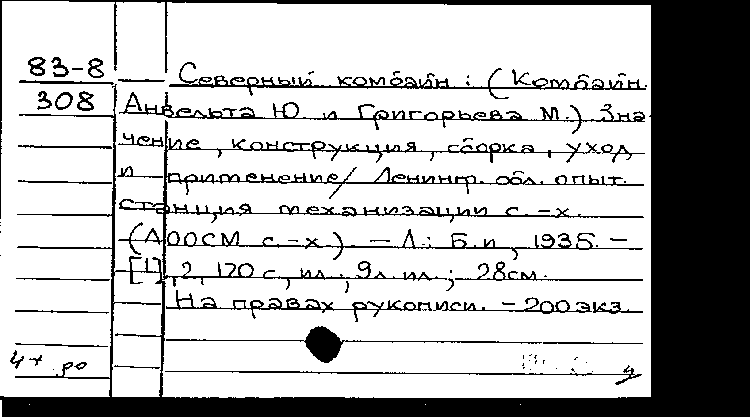 83-8
308
Северный комбайн : (Комбайн
Анвельта Ю. и Григорьева М.) Зна-
чение, конструкция, сборка, уход
и применение/ Ленингр. обл. опыт.
станция механизации с.-х.
(ЛООСМ с.-х.). — Л.: Б.и, 1935. —
[1], 2, 170 с, ил.; 9л. ил.; 28см.
На правах рукописи. — 200 экз.
4+ ро